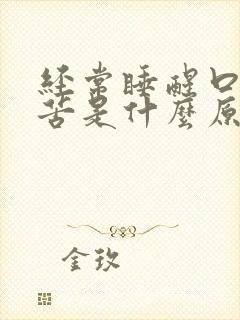 经常睡醒口
苦是什麼原
金玫